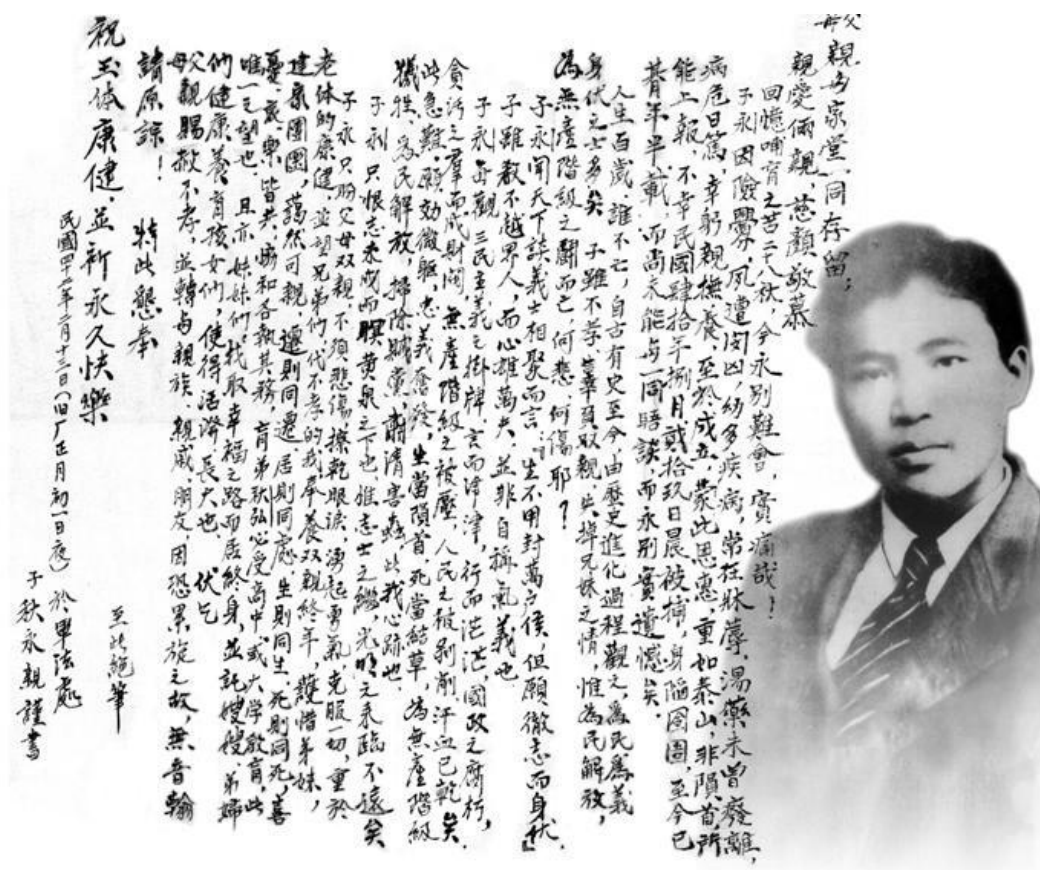 父親母親家堂一同存留:
親愛俩親、慈顏敬慕
回憶哺育之苦二十八秋,今永別難會,實痛哉?
子永因險釁,夙遭閔凶,幼多疾病,常在牀蓐,湯藥未曾廢離,
病危日篤,幸躬親撫養,至於成立,蒙此恩惠,重如泰山,非隕首所
能上報,不幸民國肆拾年捌月貳拾玖日晨被捕,身陷囹圄,至今已
朞年半載,而尚未能与一同晤談,而永別,實遺憾矣.
人生百歲,誰不亡,自古有史至今,由歷史進化过程觀之,為民為義
身伏之士多矣 子雖不孝、辜負双親、失掉兄妹之情,惟為民解放,
為無產階級之鬪而亡,何悲、何傷耶?
子永聞天下談義士相聚而言:『生不用封萬户侯,但願徹志而身伏』
子雖教不越界人,而心雄萬夫,並非自稱氣義也.
子永岳觀三民主義之掛牌,言而津津,行而茫茫,國政之腐朽,
貪污之羣而成財閥,無產階級之被壓,人民之被剝削汗血已乾矣
此急難,願効微軀,忠義奮發,生當隕首,死當結草,為無產階級
犧牲,為民解放,掃除賊黨,肅清害蟲,此我心跡也.
子永只恨志未成而瞑黄泉之下也,惟志士之繼,光明之来臨不遠矣
子永只盼父母双親,不須悲傷,擦乾眼淚,湧起勇氣,克服一切,重於
老体的康健,並望兄弟們,代不孝的我奉養双親終年,護惜弟妹,
建家團圓,藹然可親,遷則同遷、居則同處、生則同生、死則同死,喜
憂、哀、樂、皆共,嫂和各執其務,育弟秋弘必受高中或大学教育,此
唯一之望也 且亦妹妹們,找取幸福之路而居終身,並託嫂嫂、弟婦
們健康養育孩女們,使得活潑長大也. 伏乞
父母親賜赦不孝,並轉与親族、親戚、朋友、因恐累族之故,無音翰
請原諒! 特此懇奉 至此絕筆
祝玉体康健,並祈永久快樂
民國四十二年二月十三日(旧厂正月初一日夜)於軍法處
子秋永親謹書